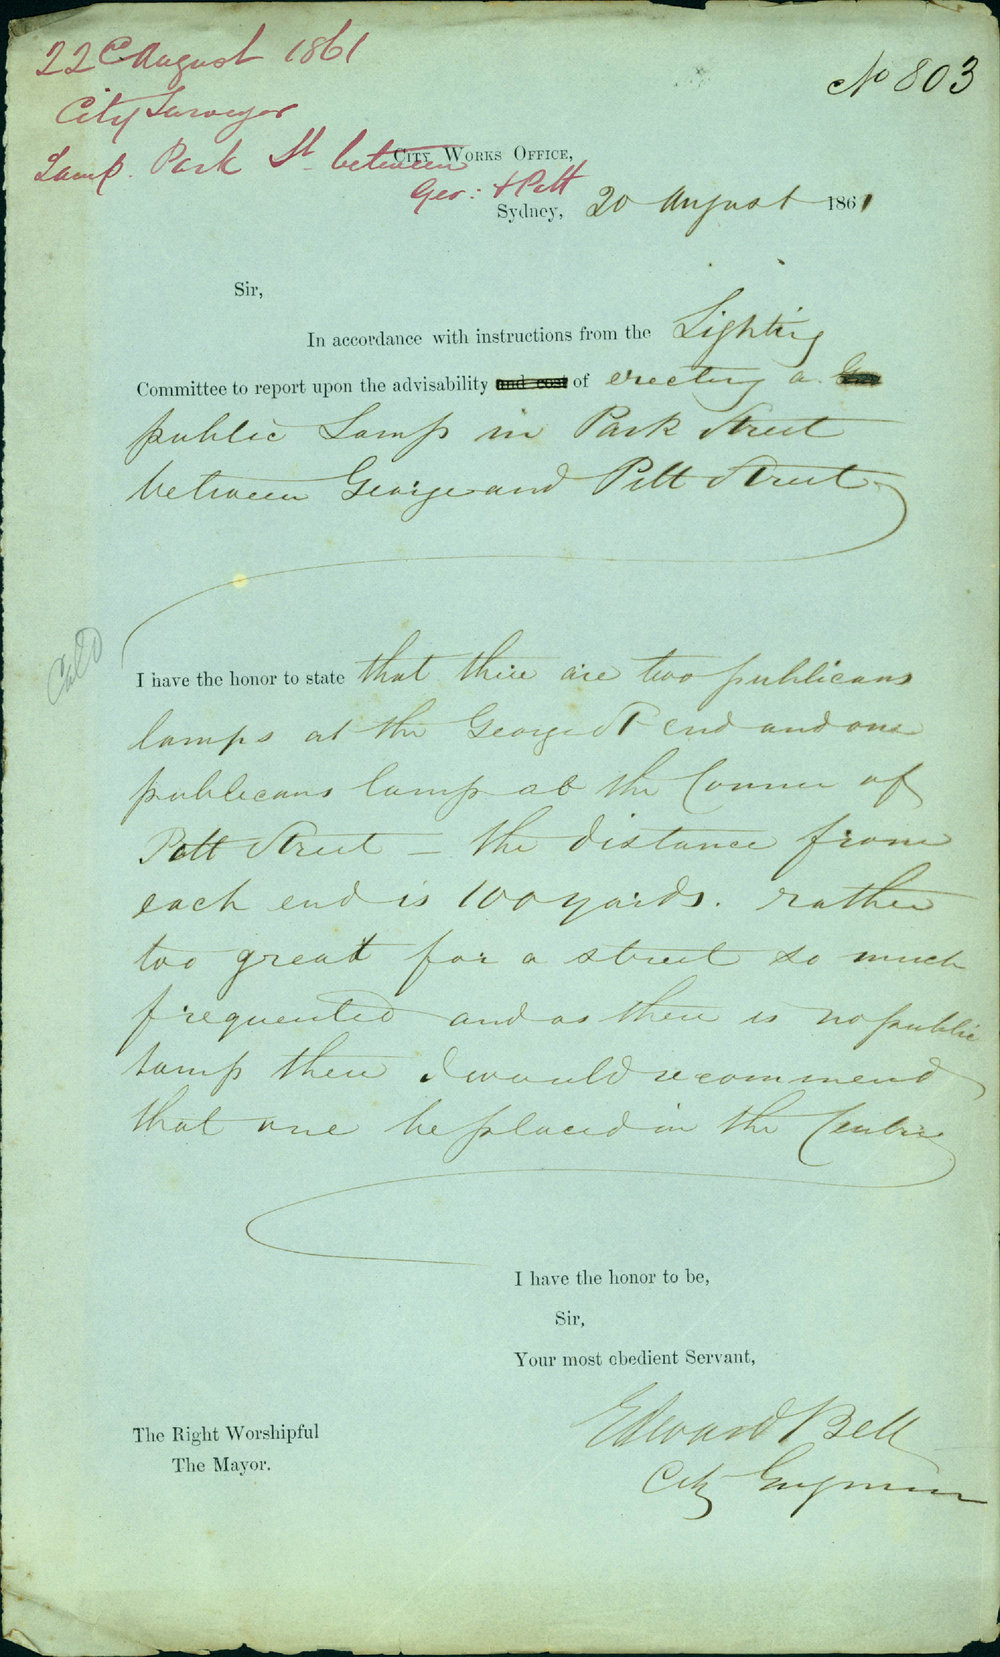 22d August 1861
No 803
City Surveyor
Lamp. Park St between
Geo: & Pitt
City Works Office,
Sydney, 20 August 1861
Sir,
In accordance with instructions from the Lighting
Committee to report upon the advisability and cost of erecting a
public Lamp in Park Street
between George and Pitt Street
I have the honor to state that there are two publicans
lamps at the George St end and one
publicans lamp at the Corner of
Pitt Street — the distance from
each end is 100 yards. rather
too great for a street so much
frequented and as there is no public
lamp there I would recommend
that one be placed in the Centre
I have the honor to be,
Sir,
Your most obedient Servant,
Edward Bell
City Engineer
The Right Worshipful
The Mayor.